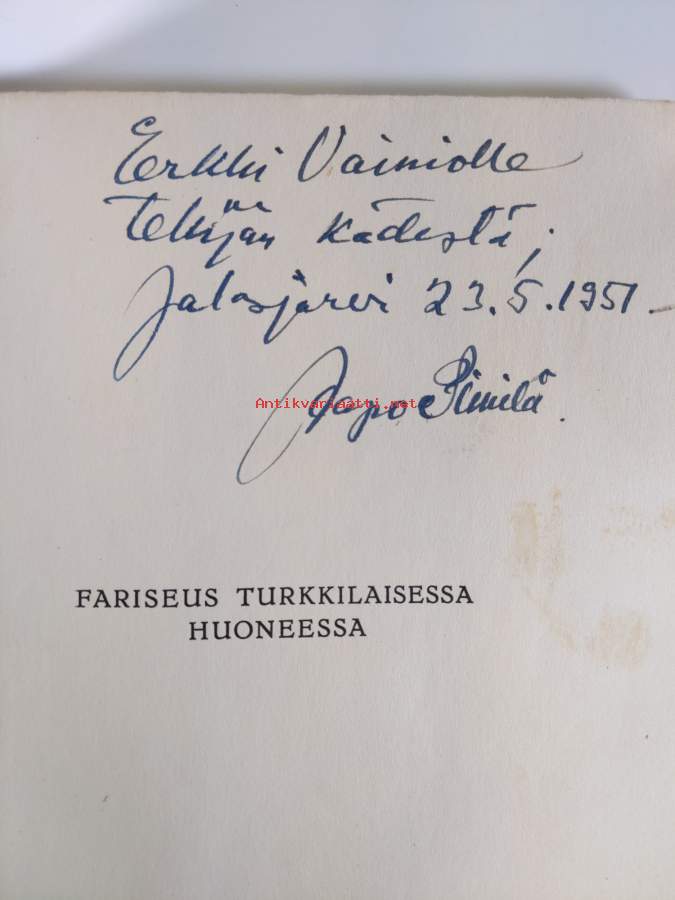 Erkki Vainiolle
Tekijän kädestä,
Jalasjärvi 23.5.1951
Antikvariaatti.net
FARISEUS TURKKILAISESSA
HUONEESSA